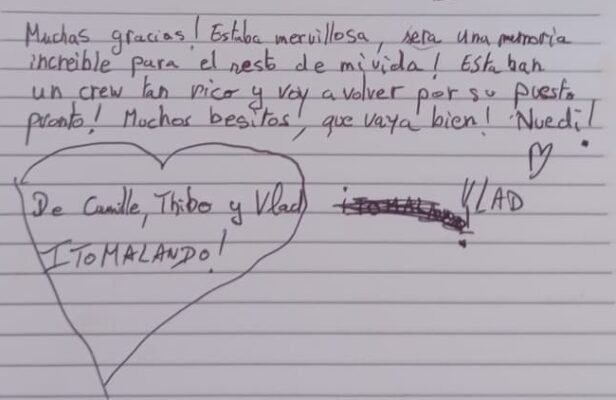 Muchas gracias! Estaba mervillosa, sera una memoria
increible para el resto de mi vida! Estaban
un crew tan rico y voy a volver por su puesto
pronto! Muchos besitos, que vaya bien! Nuedi!
De Camille, Thibo y Vlad
VLAD
ITOMALANDO!